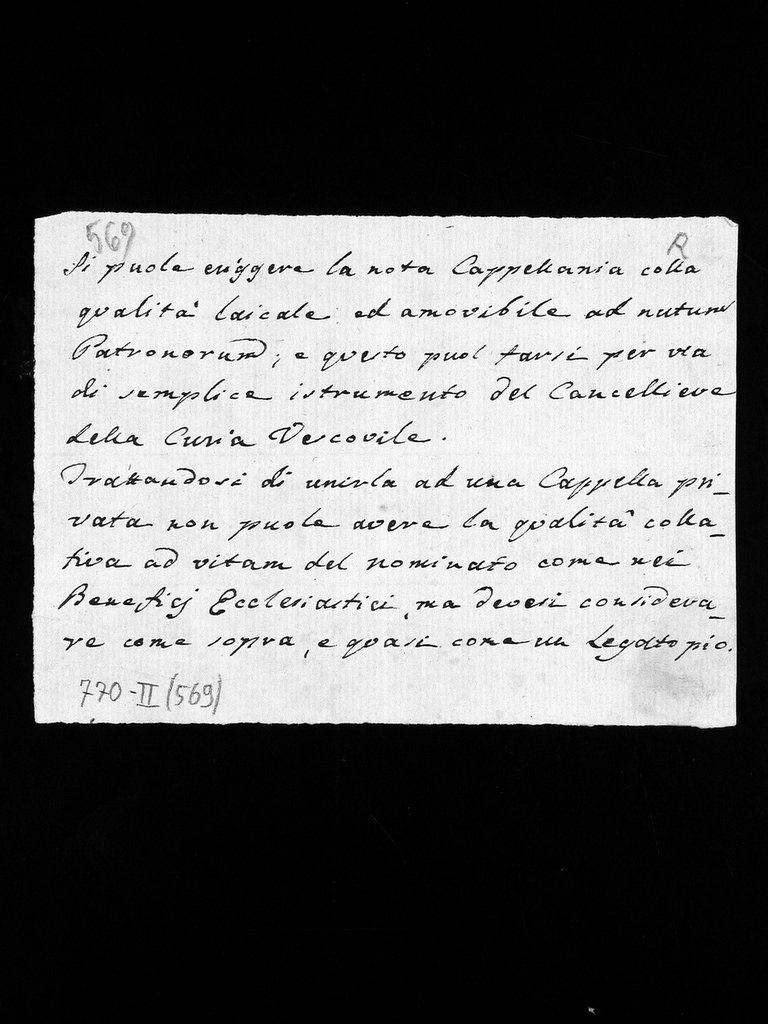 569
R
Si puole eriggere la nota Cappellania colla
qualità laicale ed amovibile ad nutum
Patronorum; e questo puol farsi per via
di semplice istrumento del Cancelliere
della Curia Vescovile.
Trattandosi di unirla ad una Cappella pri_
vata non puole avere la qualità colla_
tiva ad vitam del nominato come nei
Beneficj Ecclesiastici, ma devesi considera_
re come sopra, e quasi come un Legato pio.
770-II (569)